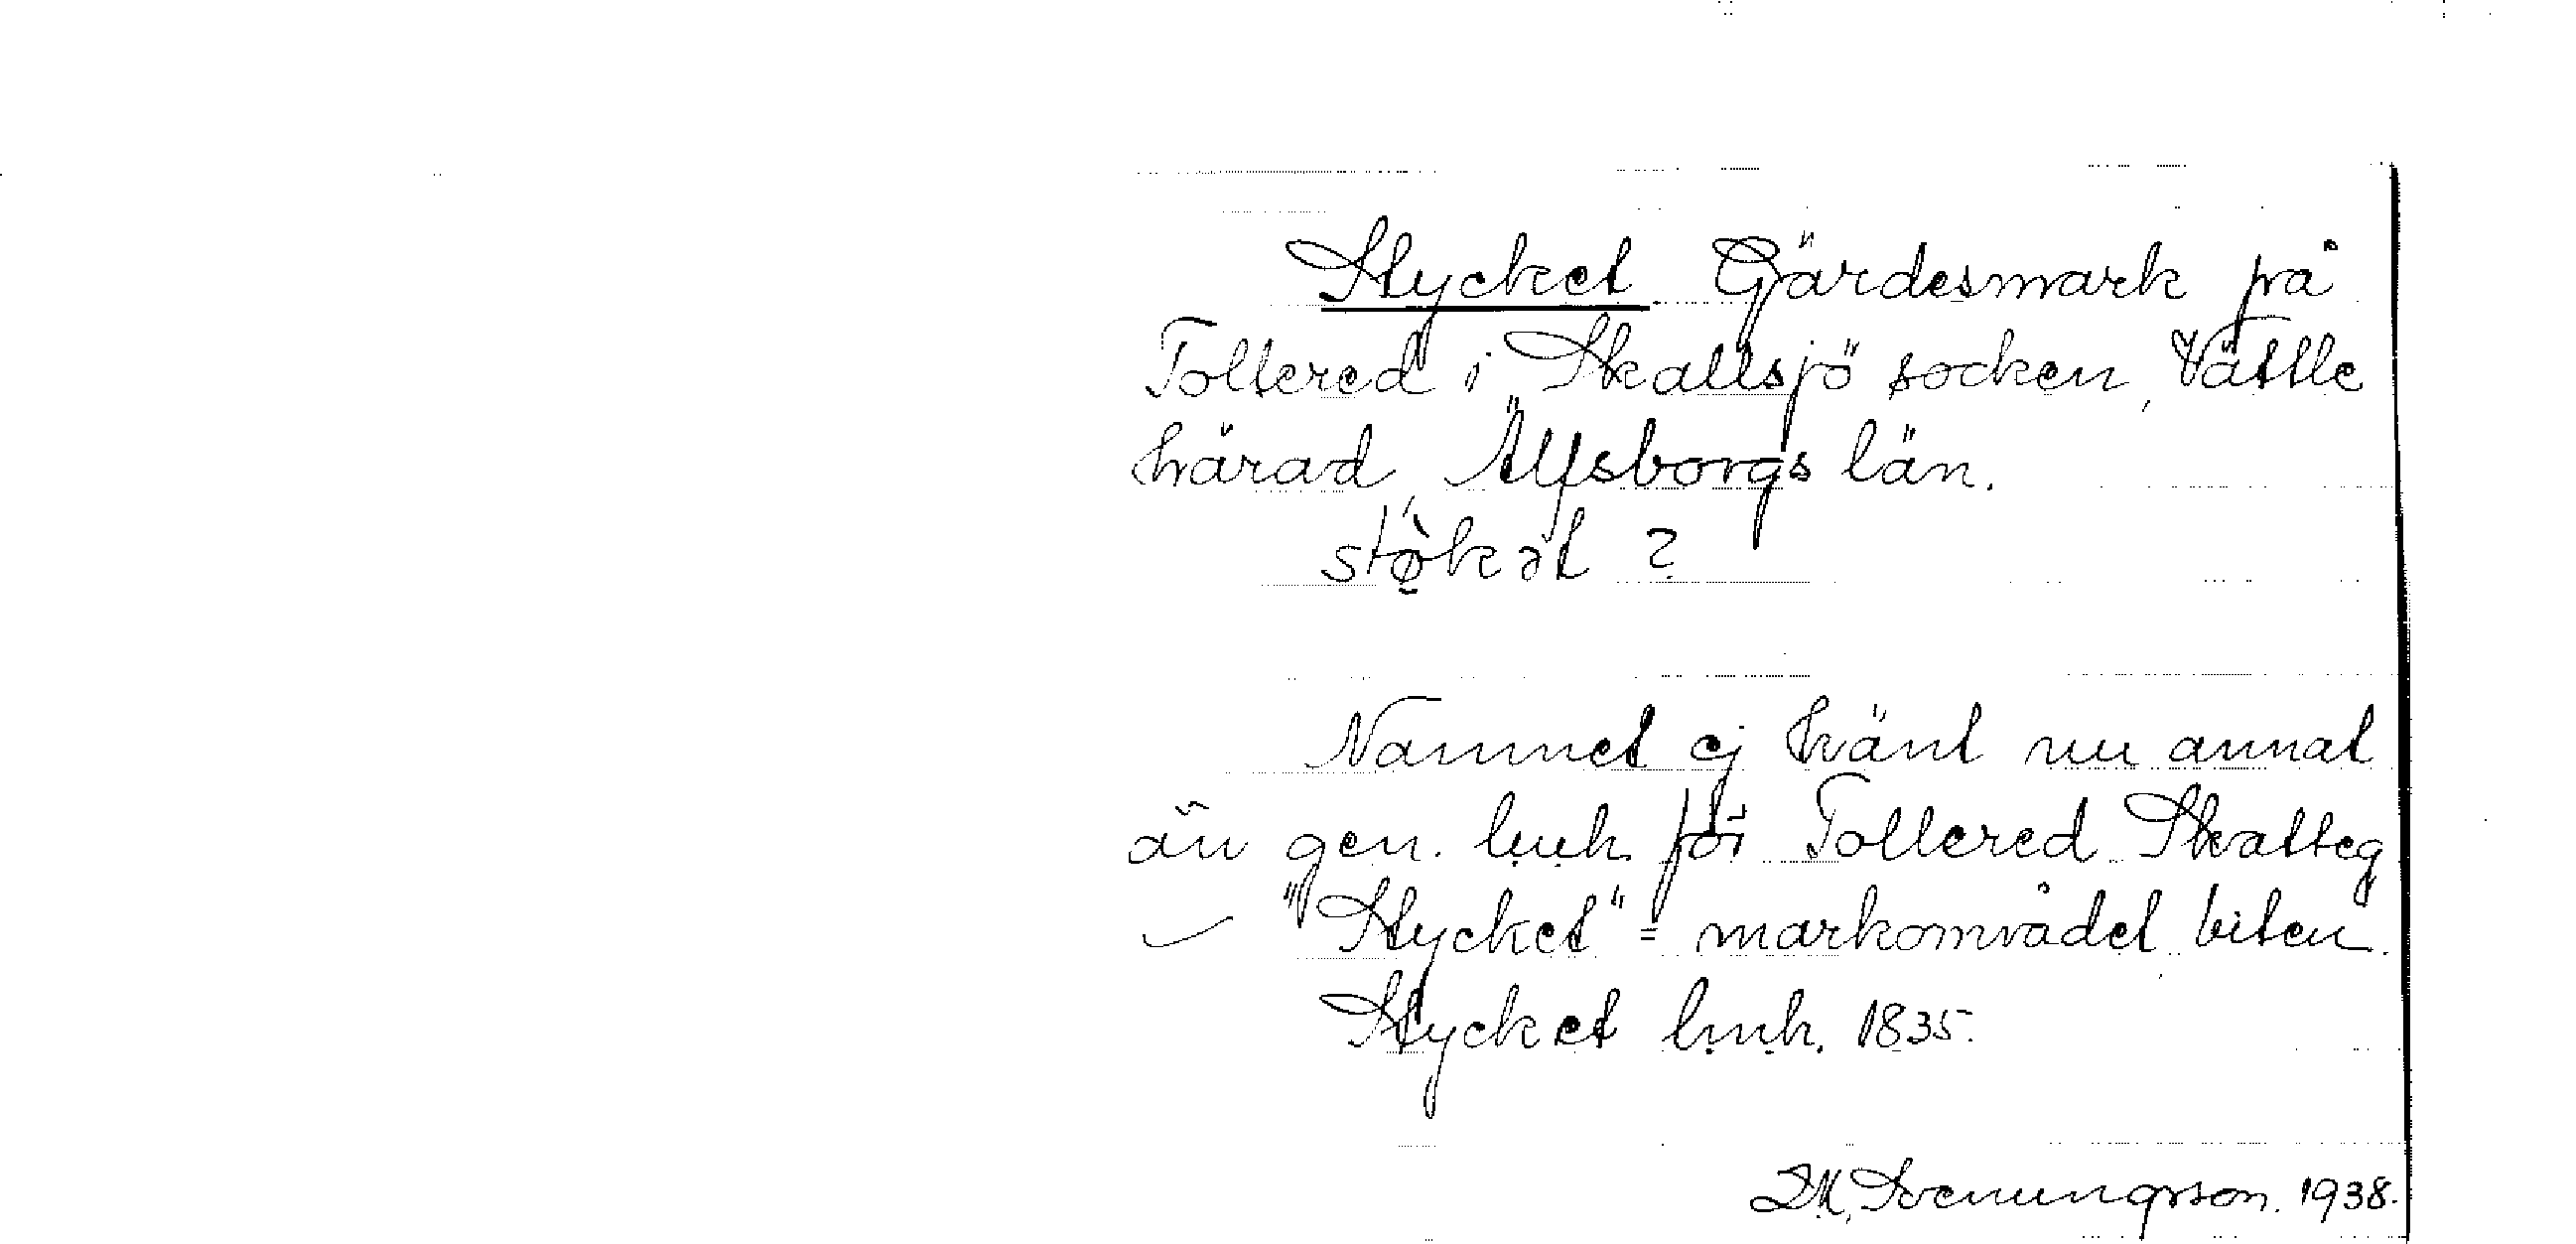 Stycket Gärdesmark på
Tollered i Skallsjö socken, Vättle
härad, Älfsborgs län.
støkət ?
Namnet ej känt nu annat
än gen. lmh. för Tollered Skatteg
"Stycket" = markområdet biten.
Stycket lmh. 1835.
D.M. Svenungsson. 1938.